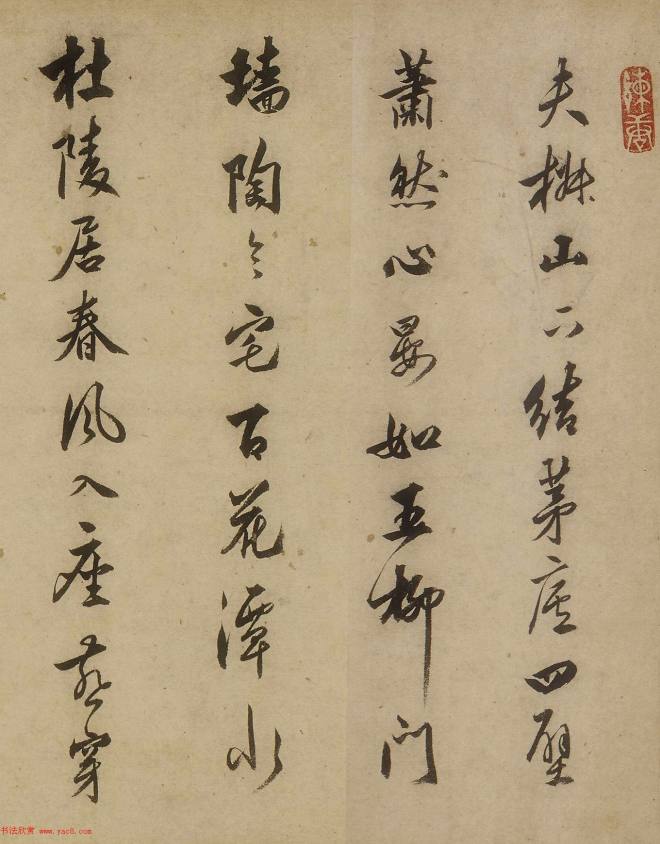 夫椒山下結茅廬四壁
蕭然心晏如五柳門
墻陶令宅百花潭水
杜陵居春風入座燕穿
书法欣赏 www.yac8.com